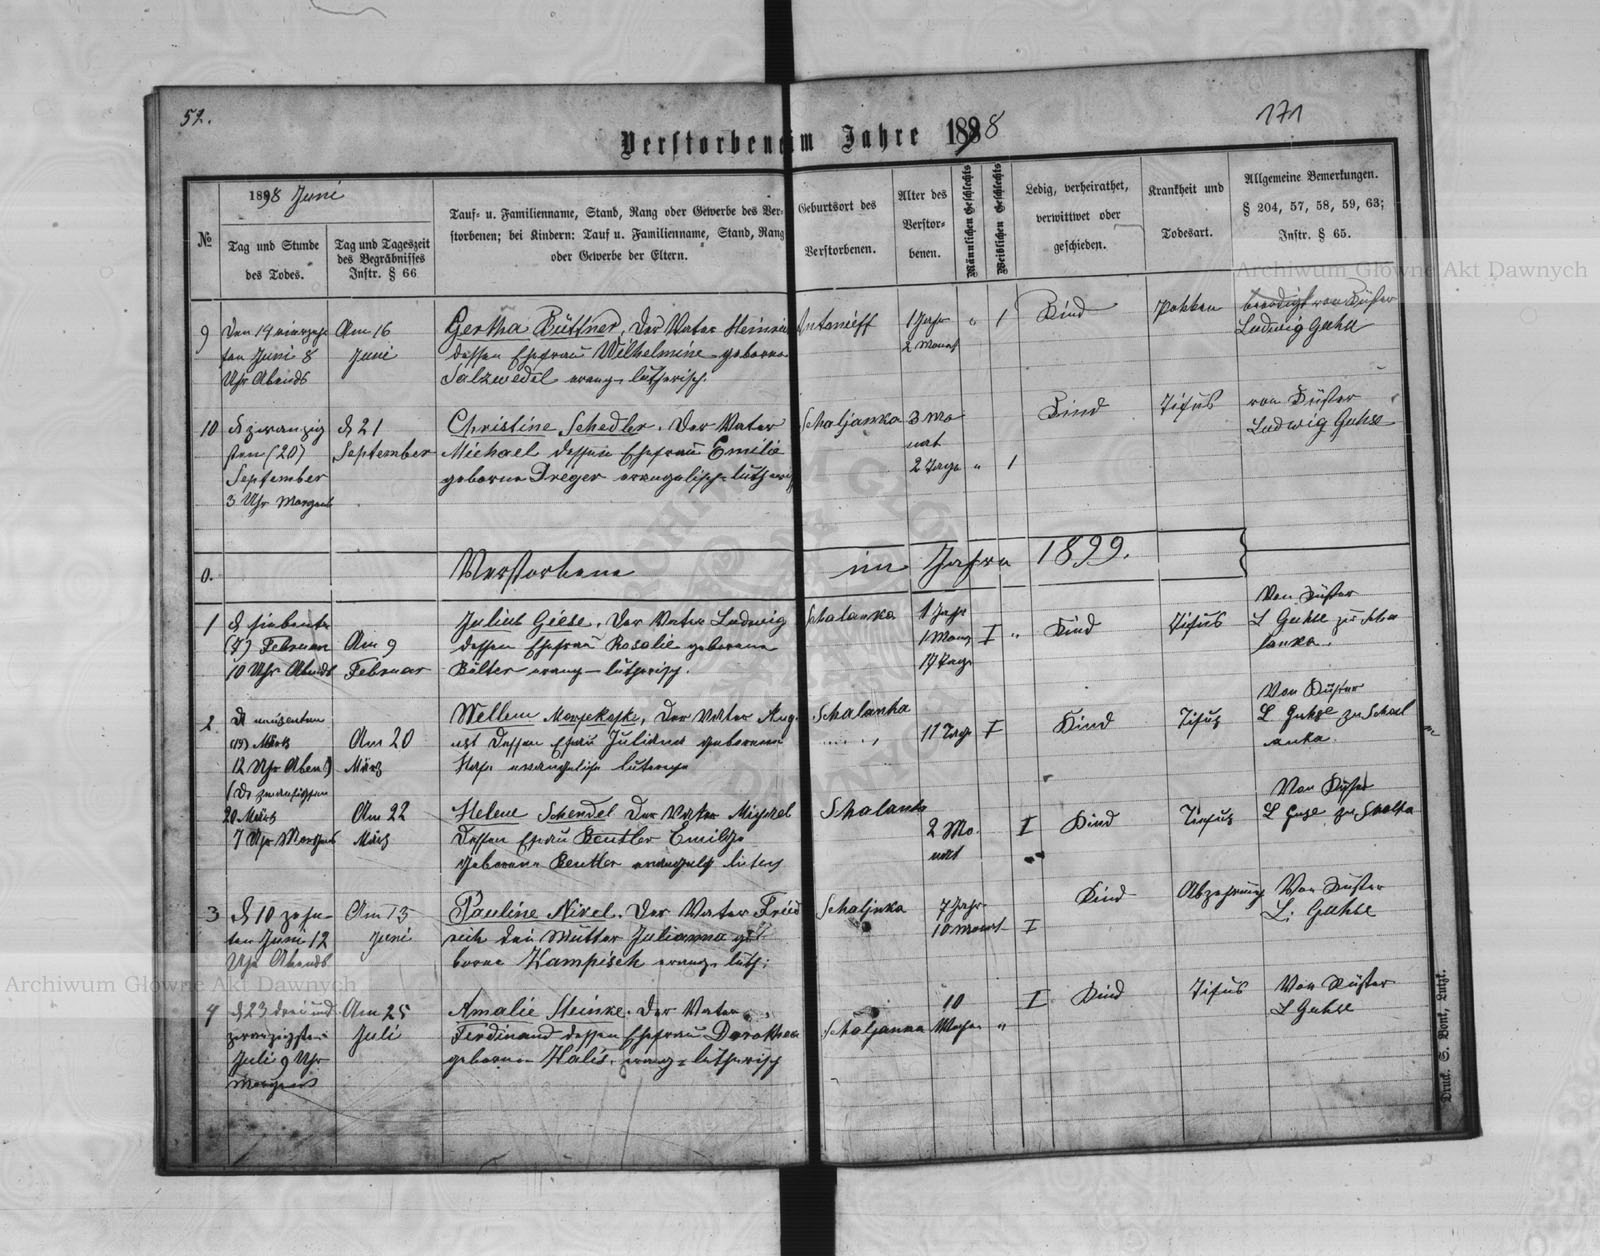 52.
171
Verstorbene im Jahre 1898
1898 Juni
№
Tag und Stunde
des Todes.
Tag und Tageszeit
des Begräbnisses
Instr. § 66
Tauf- u. Familienname, Stand, Rang oder Gewerbe des Ver-
storbenen; bei Kindern: Tauf u. Familienname, Stand, Rang
oder Gewerbe der Eltern.
Geburtsort des
Verstorbenen.
Alter des
Verstor-
benen.
Männlichen Geschlechts
Weiblichen Geschlechts
Ledig, verheirathet,
verwittwet oder
geschieden.
Krankheit und
Todesart.
Allgemeine Bemerkungen.
§ 204, 57, 58, 59, 63;
Instr. § 65.
9
Den 14 vierzehn
ten Juni 8
Uhr Abends
Am 16
Juni
Gertha Büttner, Der Vater Heinrich
dessen Ehefrau Wilhelmine geborene
Salzwedel evang. lutherisch.
Antonieff
1 Jahr
2 Monat
" 1
Kind
Pokken
beerdigt von Küster
Ludwig Guhse
10
d zwanzig
sten (20)
September
3 Uhr Morgens
d 21
September
Christine Schedler. Der Vater
Michael dessen Ehefrau Emilie
geborene Dreger evangelisch-lutherisch
Schaljanka
3 Mo
nat
2 Tage
" 1
Kind
Tifus
von Küster
Ludwig Guhse
0.
Verstorbene im Jahre 1899.
1
d siebente
(7) Februar
10 Uhr Abends
Am 9
Februar
Julius Giese. Der Vater Ludwig
dessen Ehefrau Rosalie geborene
Bölter evang-lutherisch.
Schalanka
1 Jahr
1 Mona
17 Tage
I "
Kind
Tifus
Von Küster
L Guhse zu Scha
lanka.
2
(19) März
12 Uhr Abend
Am 20
März
Wellem, Der Vater Aug-
ust Dessen Efrau Juliana geborene
Schalanka
11 Tage
I
Kind
Tifus
Von Küster
L Guhse zu Schal
anka.
20 März
7 Uhr Morgens
Am 22
März
Helene Schendel Der Vater Michael
Dessen Efrau Beutler Emilie
Geborene Beutler
Schalank
2 Mo.
nat
I
Kind
Von Küster
3
d 10 zehn-
ten Juni 12
Uhr Abends
Am 13
Juni
Pauline Nikel. Der Vater Fried
rich die Mutter Julianna ge
borne Kampisch evang. luth:
Schaljnka
7 Jahr
10 Monat
I
Kind
Abzehrung
Von Küster
L: Guhse
4
d 23 drei und
zwanzigsten
Juli 9 Uhr
Morgens
Am 25
Juli
Amalie Heinke. Der Vater
Ferdinand dessen Ehefrau Dorothea
geborene Halis. evang-lutherisch
Schaljanka
10
Wochen
" I
Kind
Tifus
Von Küster
L Guhse
Druck. S. Bonk, Lutzk.
Archiwum Główne Akt Dawnych
Archiwum Główne Akt Dawnych